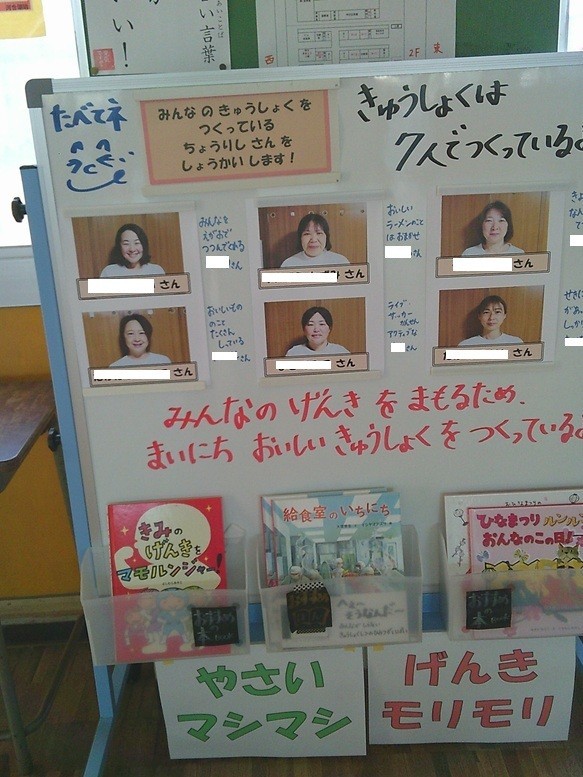 い！
い言葉
西
2F 東
たべてネ
みんなのきゅうしょくを
つくっている
ちょうりしさんを
しょうかいします！
きゅうしょくは
7人でつくっている
みんなを
えがおで
さん
さん
おいしい
ラーメンのこと
はおまかせ
さん
さん
さん
おいしいもの
のこと
たくさん
している
さん
さん
ライブ
サッカー
かんせん
アクティブな
さん
さん
みんなの げんき を まもるため、
まいにち おいしい きゅうしょく を つくっている
きみの
げんきを
マモルンジャー！
給食室のいちにち
ひなまつり ルンルン
おんなのこの日！
おすすめ
本
へぇー
そうなんだー
おすすめ
本
やさい
マシマシ
げんき
モリモリ